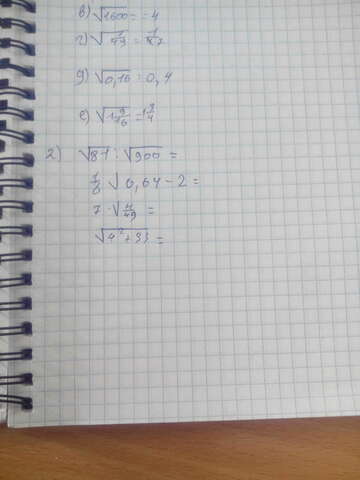 в) √1600 = -4
г) √1/49 = 1/7
д) √0,16 = 0,4
е) √1 9/16 = 1 3/4
2) √81 : √900 =
√0,64 - 2 =
7 · √4/49 =
√4² + 33 =